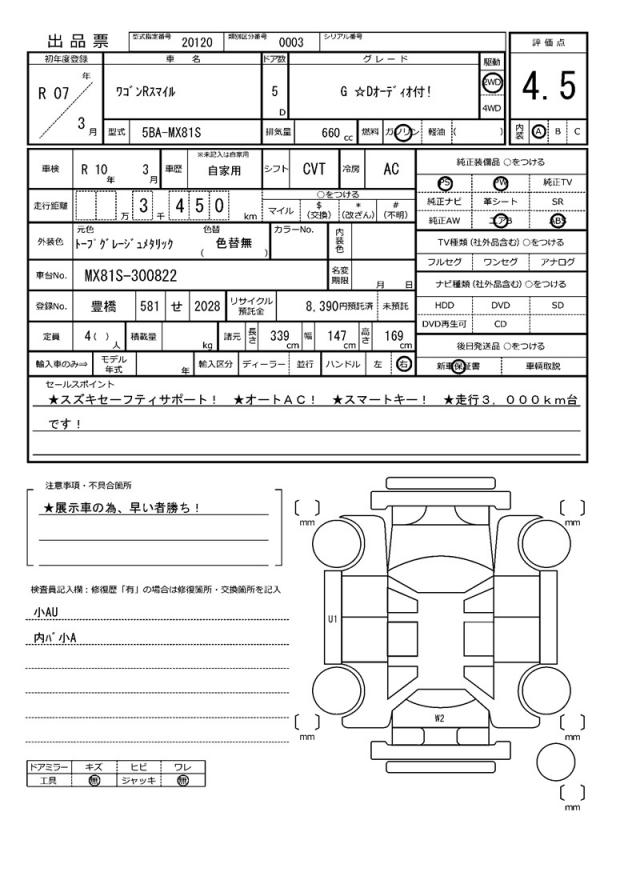 出品票 型式指定番号 20120 類別区分番号 0003 シリアル番号
初年度登録 車名 ドア数 グレード 駆動 評価点
R 07 年 3 月 ワゴンRスマイル 5 D G ☆Dオーディオ付! 2WD 4WD 4.5
型式 5BA-MX81S 排気量 660 cc 燃料 ガソリン 軽油 ( ) 内装 A B C
車検 R 10 年 3 月 車歴 ※未記入は自家用 自家用 シフト CVT 冷房 AC 純正装備品 ○をつける
PS PW 純正TV
走行距離 万 3 千 4 5 0 km ○をつける
マイル $ (交換) * (改ざん) # (不明) 純正ナビ 革シート SR
純正AW エアB ABS
外装色 元色 トープグレージュメタリック 色替 ( 色替無 ) カラーNo. 内装色 TV種類 (社外品含む) ○をつける
フルセグ ワンセグ アナログ
車台No. MX81S-300822 名変期限 月 日 ナビ種類 (社外品含む) ○をつける
登録No. 豊橋 581 せ 2028 リサイクル預託金 8,390円預託済 未預託 HDD DVD SD
DVD再生可 CD
定員 4( ) 人 積載量 kg 諸元 長さ 339 cm 幅 147 cm 高さ 169 cm 後日発送品 ○をつける
輸入車のみ⇒ モデル年式 年 輸入区分 ディーラー 並行 ハンドル 左 右 新車保証書 車輌取説
セールスポイント
★スズキセーフティサポート! ★オートAC! ★スマートキー! ★走行3,000km台
です!
注意事項・不具合箇所
★展示車の為、早い者勝ち!
検査員記入欄:修復歴「有」の場合は修復箇所・交換箇所を記入
小AU
内バ小A
ドアミラー キズ ヒビ ワレ
工具 無 ジャッキ 無
[ ] mm
[ ] mm
U1
W2
[ ] mm
[ ] mm
[ ] mm